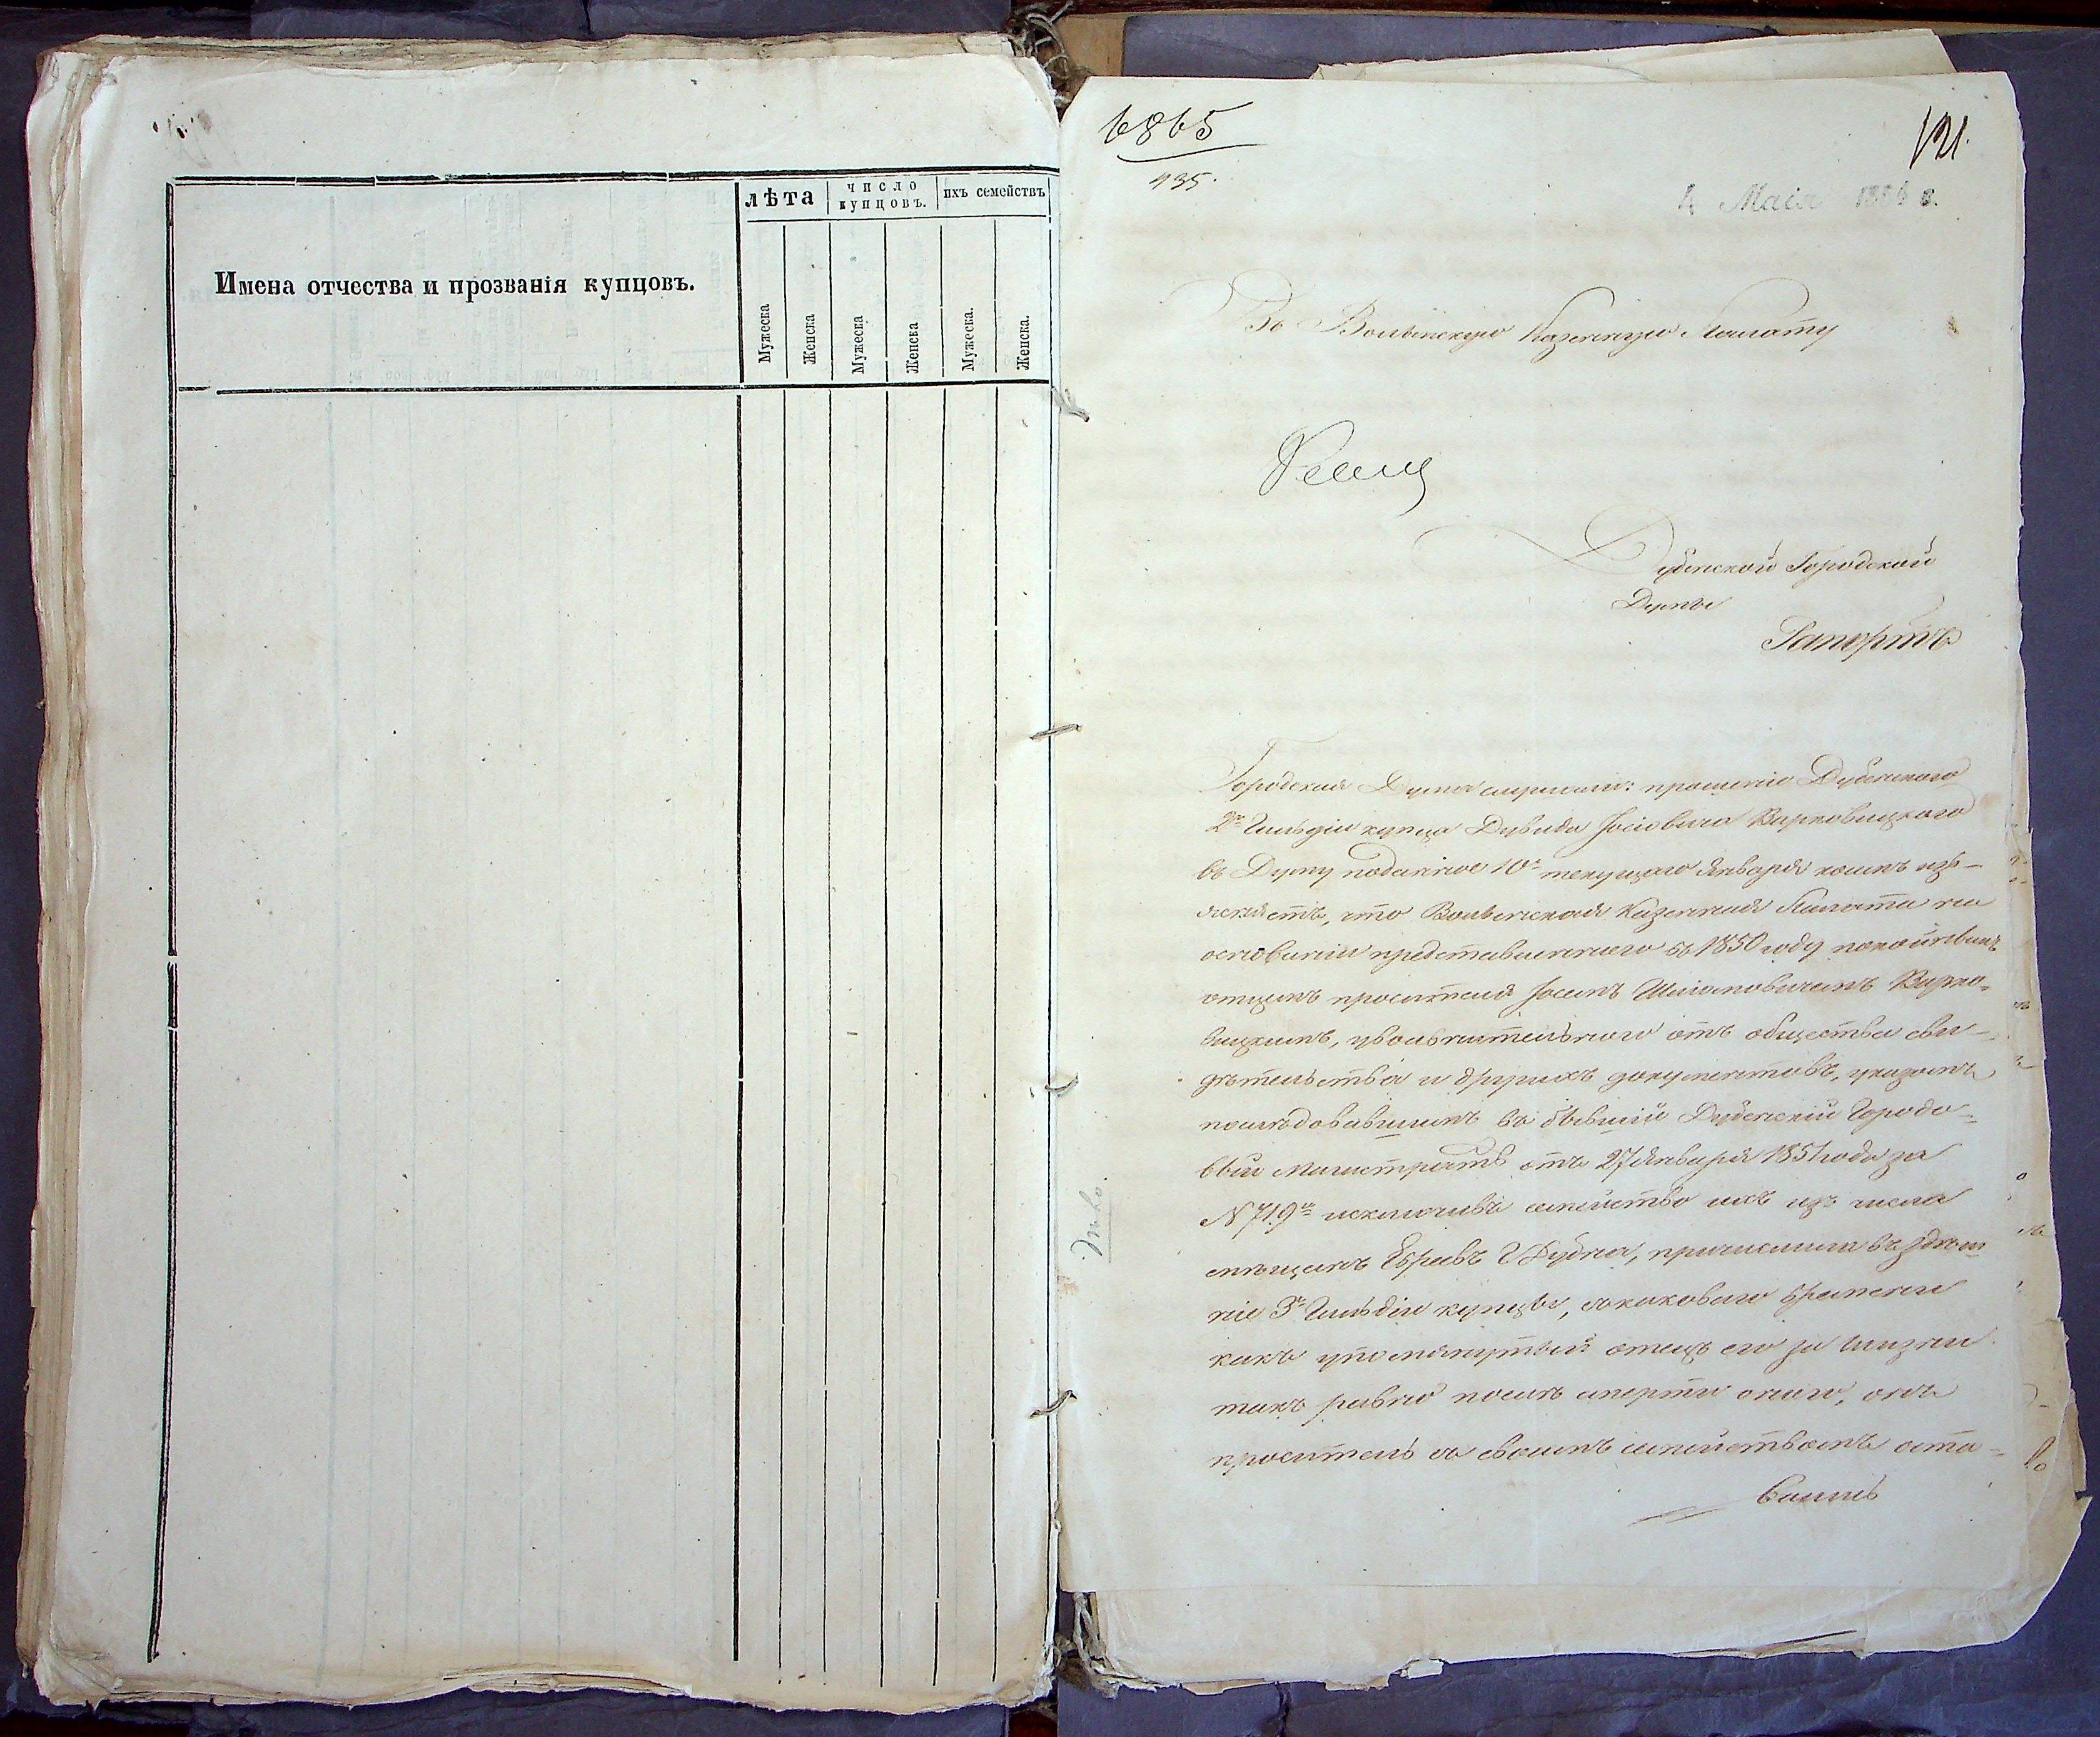 лѣта
число купцовъ.
ихъ семействъ
Имена отчества и прозванія купцовъ.
Мужеска
Женска
Мужеска
Женска
Мужеска.
Женска.
6865
935.
121.
4 Мая 1856 г.
Въ Волынскую Казенную Палату
Дубенской Городской
Думы
Рапортъ
Городская Дума слушали: прошеніе Дубенскаго
2й Гильдіи купца Дувида Іосіовича Варковицкаго
въ Думу поданное 10го текущаго Января коимъ изъ-
ясняетъ, что Волынская Казенная Палата на
основаніи представленнаго въ 1850 году покойнымъ
отцемъ просителя Іосемъ Шліомовичемъ Варко-
вицкимъ, увольнительного отъ общества сви-
дѣтельства и другихъ документовъ, указомъ
послѣдовавшимъ въ бывшій Дубенскій Городо-
вый Магистратъ отъ 27 Января 1851 года за
N 719м исключивъ семейство ихъ изъ числа
мѣщанъ Евреевъ Г. Дубна, причислила въ здѣш-
ніе 3й Гильдіи купцы, съ каковаго времени
какъ упомянутый отецъ его за жизни
такъ равно послѣ смерти оного, онъ
проситель съ своимъ семействомъ оста-